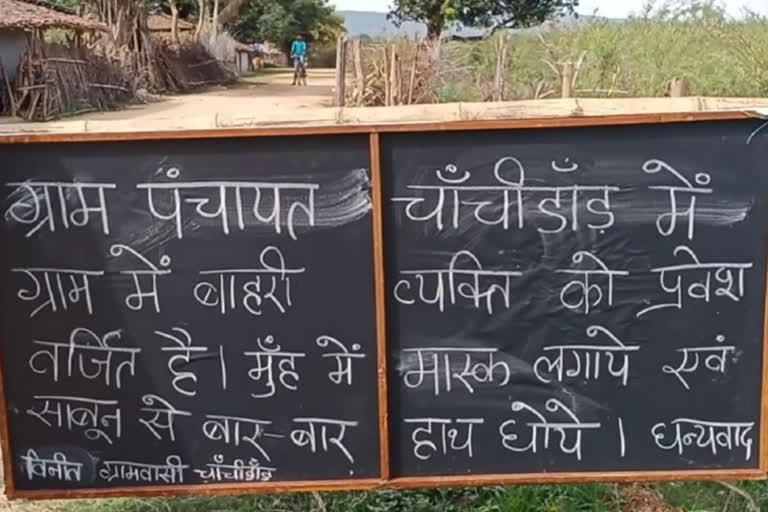 ग्राम पंचायत चाँचीडाँड़ में
ग्राम में बाहरी व्यक्ति को प्रवेश
वर्जित है। मुँह में मास्क लगाये एवं
साबून से बार-बार हाथ धोये । धन्यवाद
विनीत ग्रामवासी चाँचीडाँड़